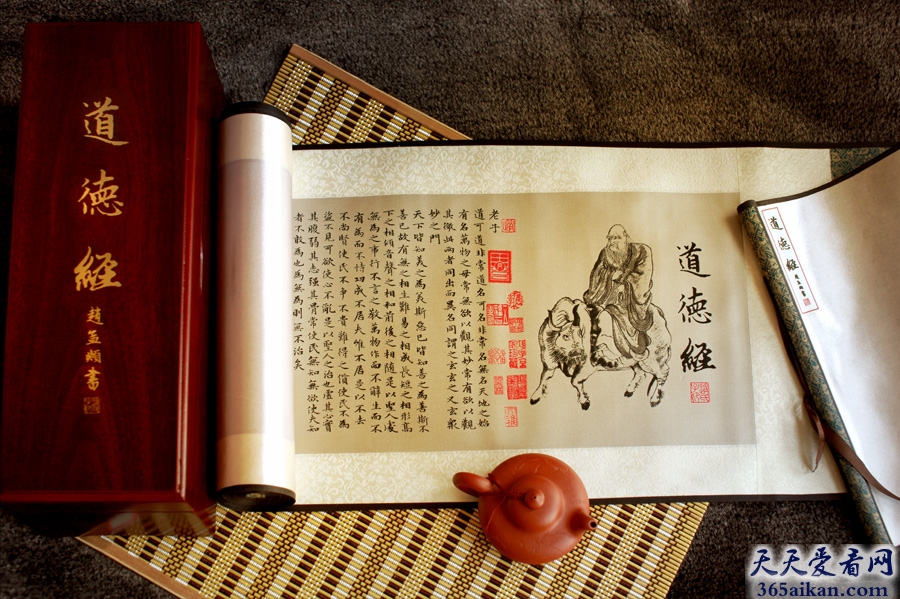 道德經
趙孟頫書
道德經
老子
道可道非常道名可名非常名無名天地之始
有名萬物之母無欲以觀其妙常有欲以觀
其徼此兩者同出而異名同謂之玄玄之又玄衆
妙之門
天下皆知美之為美斯惡已皆知善之為善斯不
善已故有無之相生難易之相成長短之相形高
下之相傾音聲之相和前後之相隨是以聖人處
無為之事行不言之教萬物作而不辭生而不
有為而不恃功成不居夫惟不居是以不去
不尚賢使民不爭不貴難得之貨使民不為
盜不見可欲使心不亂是以聖人之治也虛其心實
其腹弱其志強其骨常使民無知無欲使夫知
者不敢為也為無為則無不治矣
道德經
天天爱看网
365aikan.com